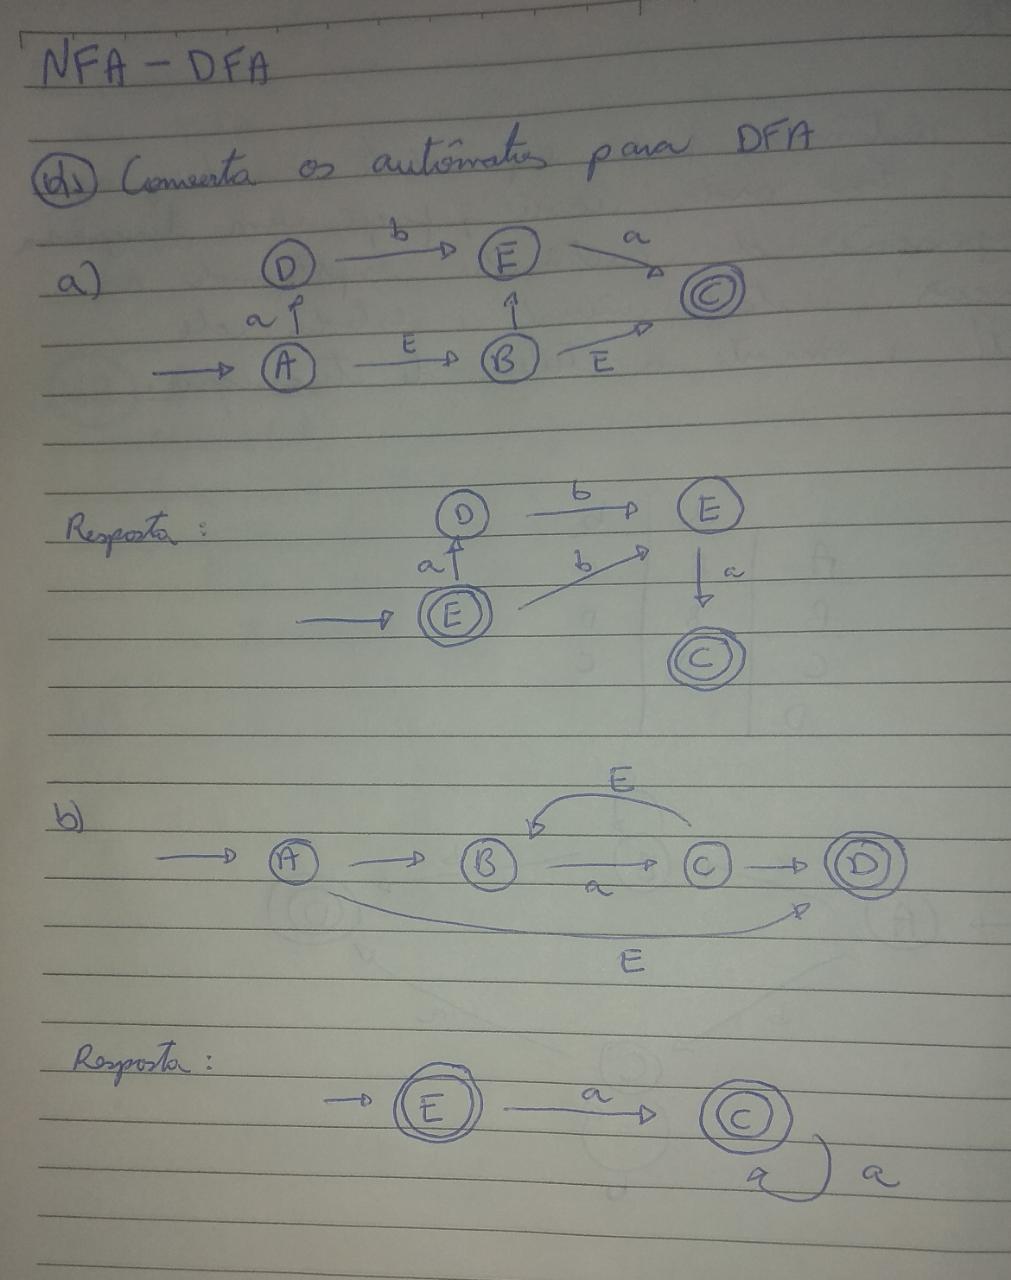 NFA - DFA
01) Converta os autômatos para DFA
a) D b E a C
a
A E B E
Resposta: D b E
a b a
E
C
b) E
A B a C D
E
Resposta: E a C
a